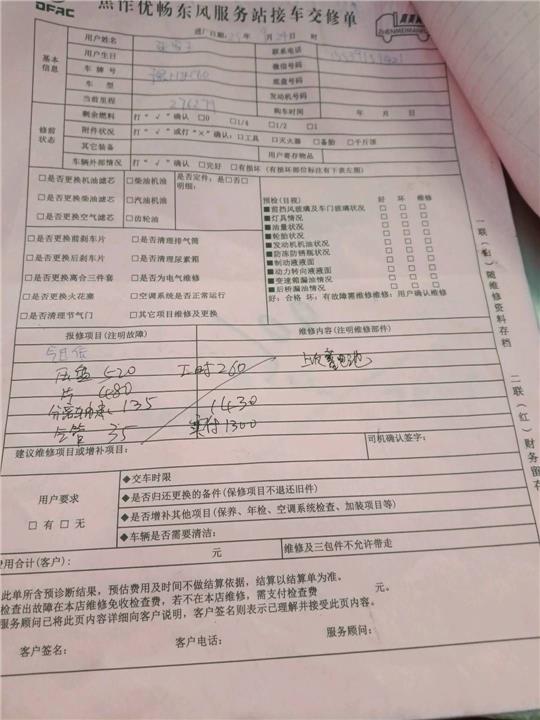 DFAC
焦作优畅东风服务站接车交修单
ZHENMEIMANKE
进厂日期: 年 月 日 时
基本信息
用户姓名 联系电话
用户生日 微信号码
车牌号 底盘号
车型 发动机号码
当前里程 276279 购车时间 年 月 日
修前状态
剩余燃料 打“√”确认 □0 □1/4 □1/2 □1
附件状况 打“√”或打“×”确认:□工具 □灭火器 □备胎 □千斤顶
其它装备 用户寄存物品
车辆外部情况 打“√”确认 □完好 □有损坏(有损坏部位标注有下表左图)
□是否更换机油滤芯 □柴油机油 是否定件:是□否□
明细:
□是否更换柴油滤芯 □汽油机油
□是否更换空气滤芯 □齿轮油
□是否更换前刹车片 □是否清理排气筒
□是否更换后刹车片 □是否清理尿素箱
□是否更换离合三件套 □是否为电气维修
□是否更换火花塞 □空调系统是否正常运行
□是否清理节气门 □其它项目维修及更换
预检(目视) 好 坏 维修
■前挡风玻璃及车门玻璃状况 □ □ □
■灯具情况 □ □ □
■油量状况 □ □ □
■轮胎状况 □ □ □
■发动机机油状况 □ □ □
■防冻防锈瓶状况 □ □ □
■制动液液面 □ □ □
■动力转向液液面 □ □ □
■变速箱漏油情况 □ □ □
■后桥漏油情况 □ □ □
好:合格 坏:有故障需维修维修:用户确认维修
报修项目(注明故障) 维修内容(注明维修部件)
压盘 520 工时260
片 480
分离轴承 135 1430
气管 35 实付1300
上次蓄电池
建议维修项目或增补项目: 司机确认签字:
用户要求
□ 有 □ 无
◆交车时限
◆是否归还更换的备件(保修项目不退还旧件)
◆是否增补其他项目(保养、年检、空调系统检查、加装项目等)
◆车辆是否需要清洁:
费用合计(客户): 元 维修及三包件不允许带走
此单所含预诊断结果,预估费用及时间不做结算依据,结算以结算单为准。
检查出故障在本店维修免收检查费,若不在本店维修,需支付检查费 元。
服务顾问已将此页内容详细向客户说明,客户签名则表示已理解并接受此页内容。
客户签名: 客户电话: 服务顾问:
一联(白)随维修资料存档
二联(红)财务留存